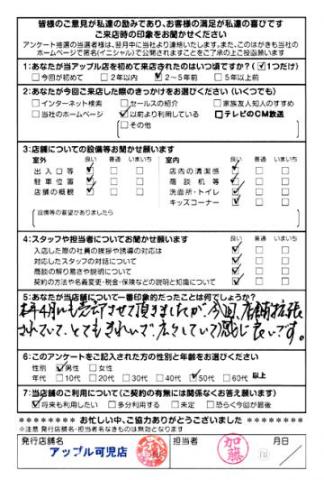 皆様のご意見が私達の励みであり、お客様の満足が私達の喜びです
ご来店時の印象をお聞かせください
アンケート当選の当選者様は、翌月中に当社より連絡いたします。また、このはがきも当社の
ホームページで匿名(イニシャル)で公開されますことをご了承の上ご投函願います
1:あなたが当アップル店を初めて来店されたのはいつ頃ですか?(✓1つだけ)
□今回が初めて □2年以内 ✓2～5年前 □5年以上前
2:あなたが今回ご来店した際のきっかけをお選びください(いくつでも)
□インターネット検索 □セールスの紹介 □家族友人知人のすすめ
□当社のホームページ ✓以前より利用している □テレビのCM放送
□その他
3:店舗についての設備等お聞かせ願います
室外 良い 普通 いまいち 室内 良い 普通 いまいち
出入口等 ✓ □ □ 店内の清潔感 ✓ □ □
駐車位置 ✓ □ □ 商談机等 ✓ □ □
店舗の概観 ✓ □ □ 洗面所・トイレ ✓ □ □
キッズコーナー ✓ □ □
設備等の要望がありましたら
4:スタッフや担当者についてお聞かせ願います
良い 普通 いまいち
入店した際の社員の挨拶や誘導の対応は ✓ □ □
対応したスタッフの対話について ✓ □ □
商談の解り易さや説明について ✓ □ □
契約の方法や名義変更・税金・保険などの説明と知識について ✓ □ □
5:あなたが当店舗について一番印象的だったことは何でしょうか?
本年4月にも売却させて頂きましたが、今回、店舗拡張
されていて、とてもきれいで広々していて感じ良いです。
6:このアンケートをご記入された方の性別と年齢をお選びください
性別 ✓男性 □女性
年代 □10代 □20代 □30代 □40代 ✓50代 □60代 以上
7:当店舗のご利用について(ご契約の有無には関係なくお答え願います)
✓将来も利用したい □多分利用する □未定 □恐らく今回が最後
******** お忙しい中、ご協力ありがとうございました ********
※注意 発行店舗名・担当者名なきものは無効となります
発行店舗名 担当者 月日
アップル可児店 加藤 /